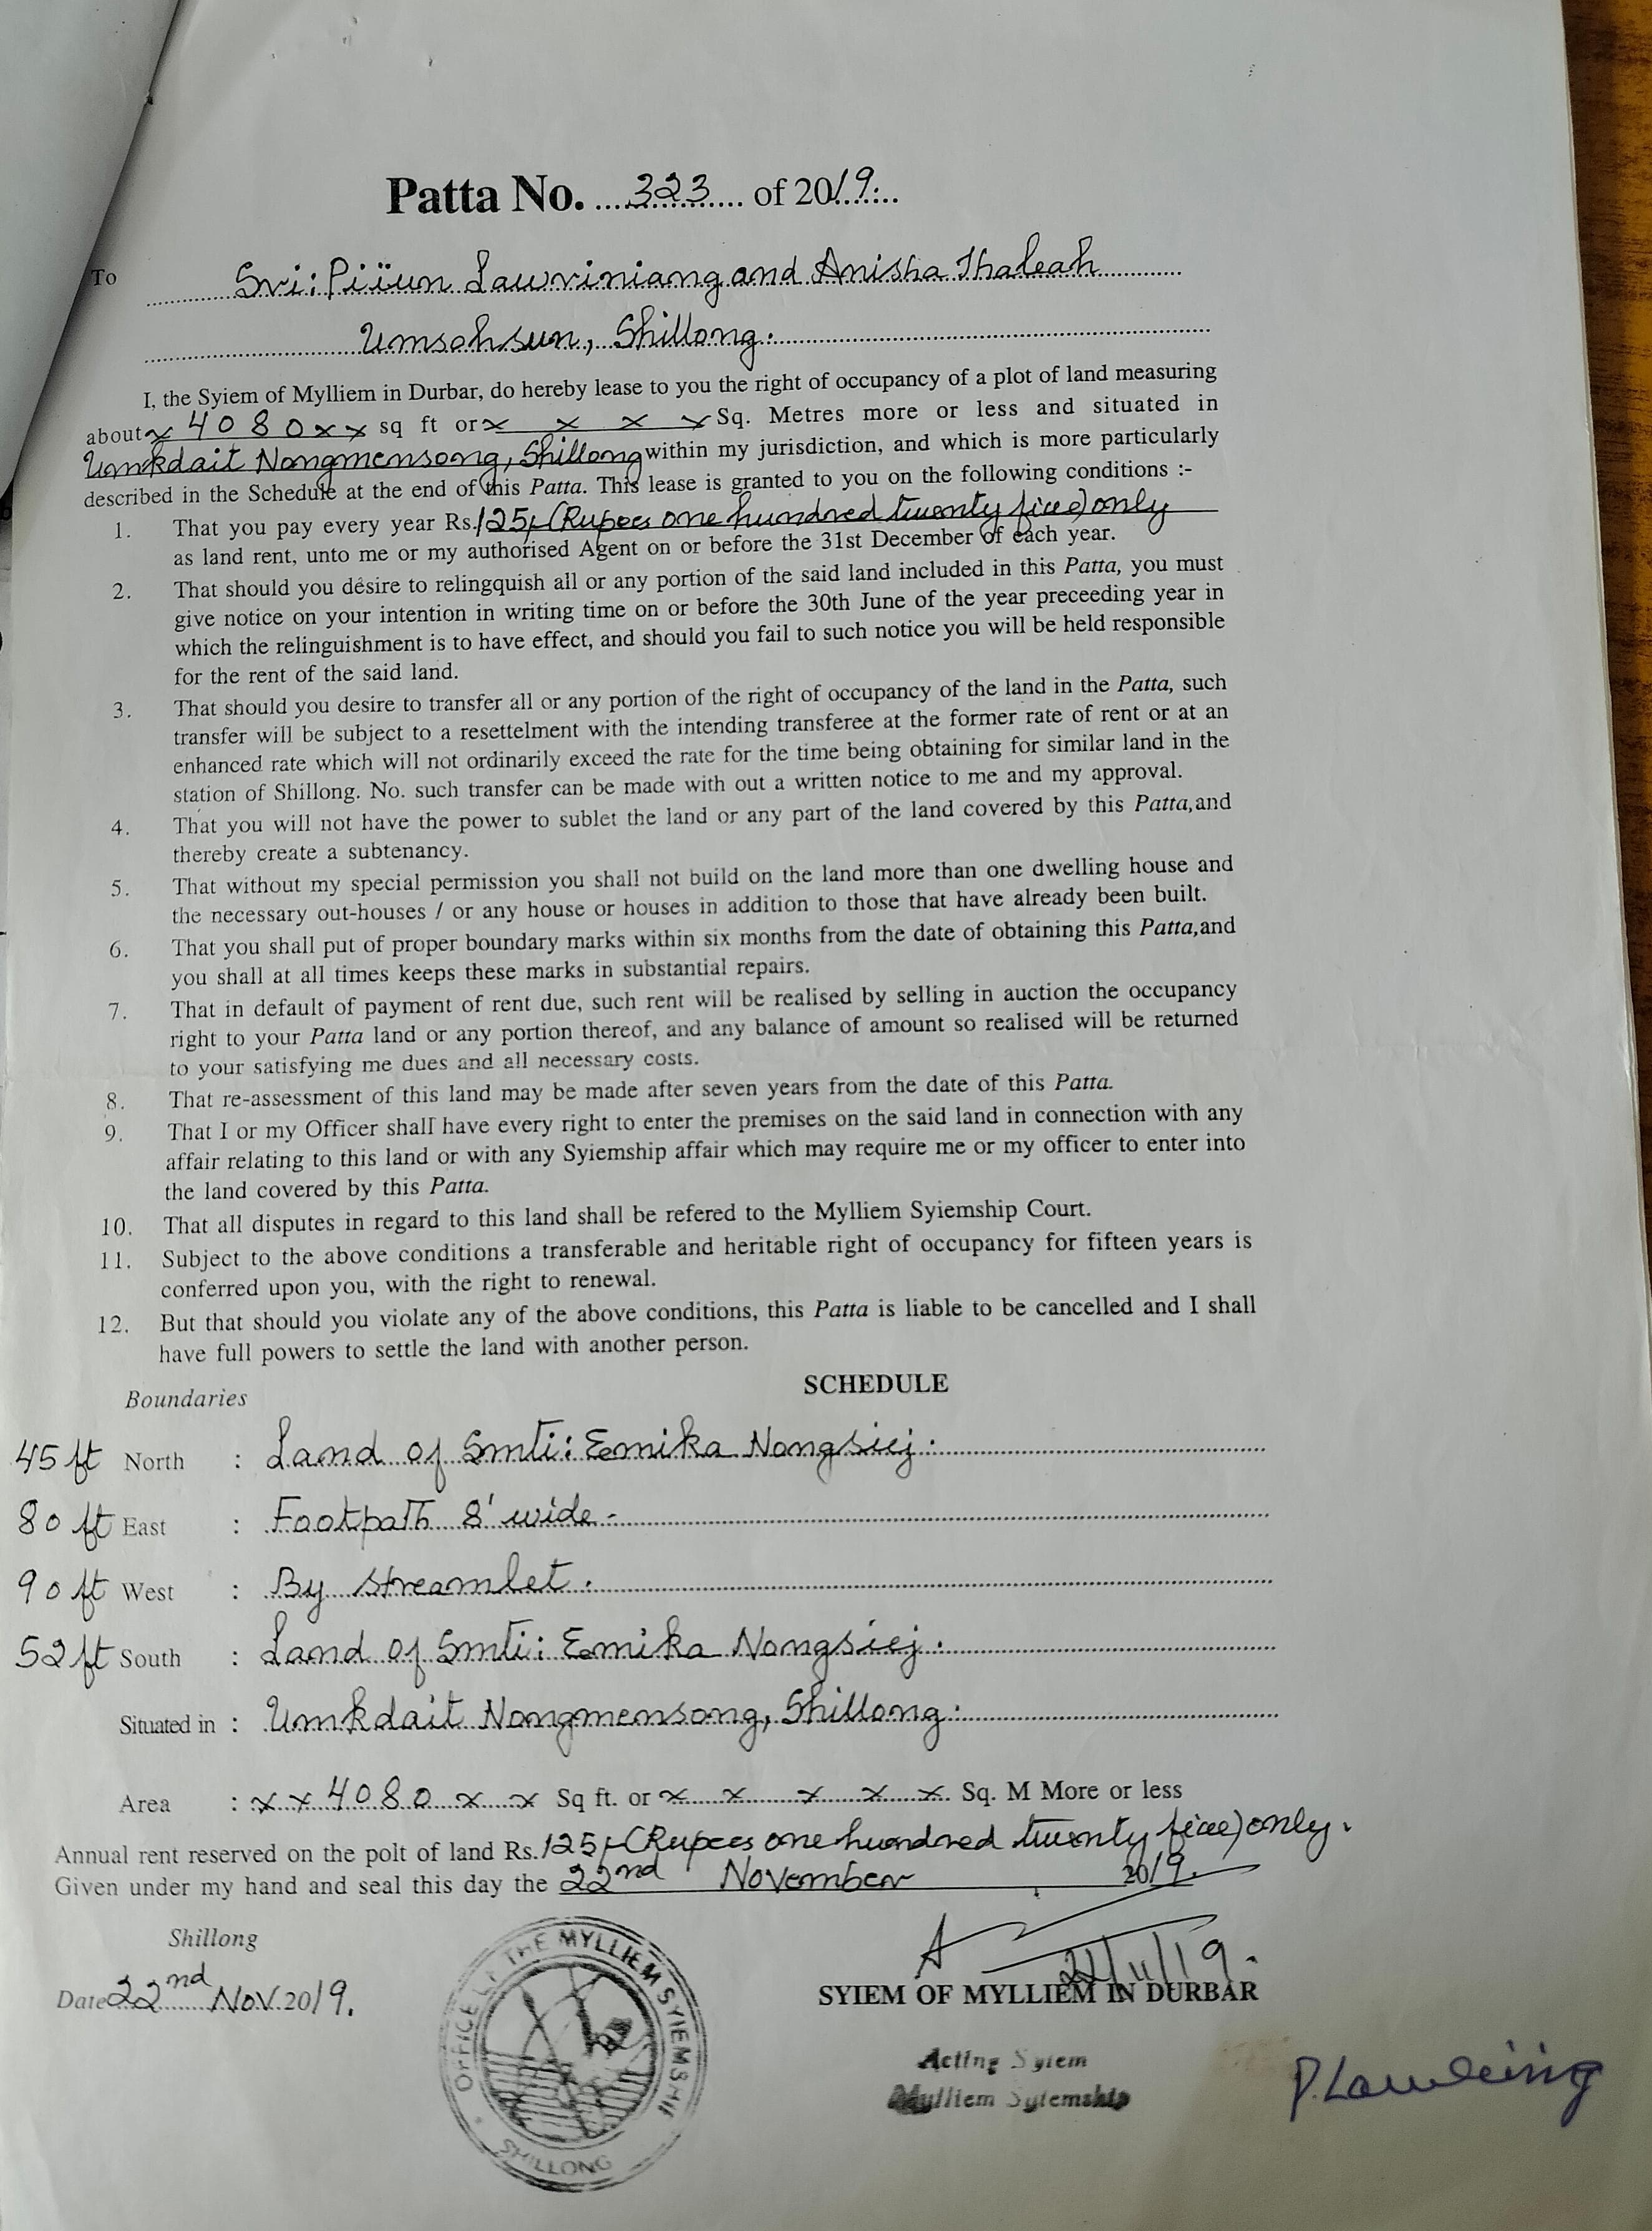 Patta No. 323 of 2019.
To Sri: Piïun Lawriniang and Anisha Thaleah
Umsohsun, Shillong.
I, the Syiem of Mylliem in Durbar, do hereby lease to you the right of occupancy of a plot of land measuring
about x 4080 x x sq ft or x x x x Sq. Metres more or less and situated in
Umkdait Nongmensong, Shillong within my jurisdiction, and which is more particularly
described in the Schedule at the end of this Patta. This lease is granted to you on the following conditions :-
1. That you pay every year Rs. 125/- (Rupees one hundred twenty five) only
as land rent, unto me or my authorised Agent on or before the 31st December of each year.
2. That should you desire to relingquish all or any portion of the said land included in this Patta, you must
give notice on your intention in writing time on or before the 30th June of the year preceeding year in
which the relinguishment is to have effect, and should you fail to such notice you will be held responsible
for the rent of the said land.
3. That should you desire to transfer all or any portion of the right of occupancy of the land in the Patta, such
transfer will be subject to a resettelment with the intending transferee at the former rate of rent or at an
enhanced rate which will not ordinarily exceed the rate for the time being obtaining for similar land in the
station of Shillong. No. such transfer can be made with out a written notice to me and my approval.
4. That you will not have the power to sublet the land or any part of the land covered by this Patta,and
thereby create a subtenancy.
5. That without my special permission you shall not build on the land more than one dwelling house and
the necessary out-houses / or any house or houses in addition to those that have already been built.
6. That you shall put of proper boundary marks within six months from the date of obtaining this Patta,and
you shall at all times keeps these marks in substantial repairs.
7. That in default of payment of rent due, such rent will be realised by selling in auction the occupancy
right to your Patta land or any portion thereof, and any balance of amount so realised will be returned
to your satisfying me dues and all necessary costs.
8. That re-assessment of this land may be made after seven years from the date of this Patta.
9. That I or my Officer shall have every right to enter the premises on the said land in connection with any
affair relating to this land or with any Syiemship affair which may require me or my officer to enter into
the land covered by this Patta.
10. That all disputes in regard to this land shall be refered to the Mylliem Syiemship Court.
11. Subject to the above conditions a transferable and heritable right of occupancy for fifteen years is
conferred upon you, with the right to renewal.
12. But that should you violate any of the above conditions, this Patta is liable to be cancelled and I shall
have full powers to settle the land with another person.
SCHEDULE
Boundaries
45 ft North : Land of Smti: Esmika Nongsiej.
80 ft East : Footpath 8' wide-
90 ft West : By streamlet.
52 ft South : Land of Smti: Esmika Nongsiej.
Situated in : Umkdait Nongmensong, Shillong.
Area : x x 4080 x x Sq ft. or x x x x x. Sq. M More or less
Annual rent reserved on the polt of land Rs. 125/- (Rupees one hundred twenty five) only.
Given under my hand and seal this day the 22nd November 2019.
Shillong
Date 22nd Nov. 2019.
22/11/19.
SYIEM OF MYLLIEM IN DURBAR
Acting Syiem
Mylliem Syiemship
OFFICE OF THE MYLLIEM SYIEMSHIP
SHILLONG